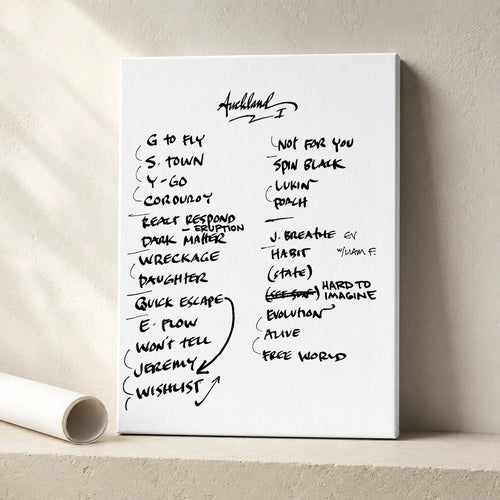 Auckland
I
G TO FLY
S. TOWN
Y-GO
CORDUROY
REACT RESPOND
- ERUPTION
DARK MATTER
WRECKAGE
DAUGHTER
QUICK ESCAPE
E. FLOW
WON'T TELL
JEREMY
WISHLIST
NOT FOR YOU
SPIN BLACK
LUKIN
PORCH
J. BREATHE EV
HABIT W/LIAM F.
(STATE)
HARD TO
IMAGINE
EVOLUTION
ALIVE
FREE WORLD